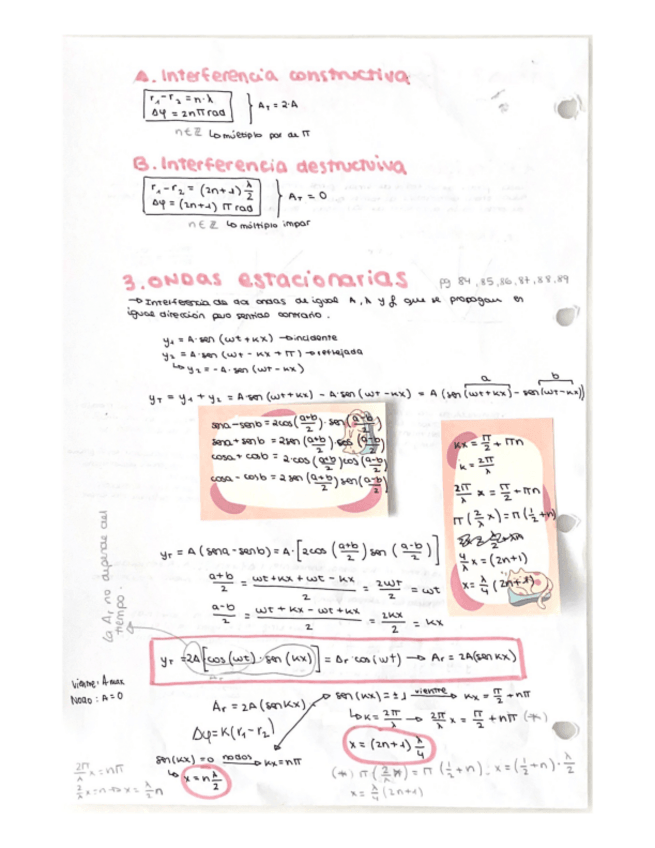 A. Interferencia constructiva
r₁-r₂ = n·λ
Δφ = 2nπ rad
} A_T = 2·A
n∈ℤ ↳ múltiplo par de π
B. Interferencia destructiva
r₁-r₂ = (2n+1) λ/2
Δφ = (2n+1) π rad
} A_T = 0
n∈ℤ ↳ múltiplo impar
3. ONDAS ESTACIONARIAS pg 84, 85, 86, 87, 88, 89
→ Interferencia de dos ondas de igual A, λ y f que se propagan en
igual dirección pero sentido contrario.
y₁ = A·sen (ωt + kx) → incidente
y₂ = A·sen (ωt - kx + π) → reflejada
↳ y₂ = -A·sen (ωt - kx)
a b
y_T = y₁ + y₂ = A·sen (ωt + kx) - A·sen (ωt - kx) = A (sen(ωt+kx) - sen(ωt-kx))
sena - senb = 2cos((a+b)/2)·sen((a-b)/2)
sena + senb = 2sen((a+b)/2)·cos((a-b)/2)
cosa + cosb = 2·cos((a+b)/2)cos((a-b)/2)
cosa - cosb = 2sen((a+b)/2)sen((a-b)/2)
kx = π/2 + πn
k = 2π/λ
2π/λ x = π/2 + πn
π(2/λ x) = π(1/2 + n)
4/λ x = (2n+1)
x = λ/4 (2n+1)
y_T = A (sena - senb) = A·[2cos((a+b)/2) sen((a-b)/2)]
(a+b)/2 = (ωt + kx + ωt - kx)/2 = 2ωt/2 = ωt
(a-b)/2 = (ωt + kx - ωt + kx)/2 = 2kx/2 = kx
La A_T no depende del
tiempo.
y_T = 2A [cos(ωt)·sen(kx)] = A_T·cos(ωt) → A_T = 2A(sen kx)
Vientre: A max
Nodo: A = 0
A_T = 2A(sen kx)
sen(kx) = ±1 vientre → kx = π/2 + nπ
↳ k = 2π/λ → 2π/λ x = π/2 + nπ (*)
Δφ = k(r₁-r₂)
x = (2n+1) λ/4
sen(kx) = 0 nodos → kx = nπ
↳ x = n λ/2
2π/λ x = nπ
2/λ x = n → x = λ/2 n
(*) π(2/λ x) = π(1/2 + n), x = (1/2 + n)·λ/2
x = λ/4 (2n+1)